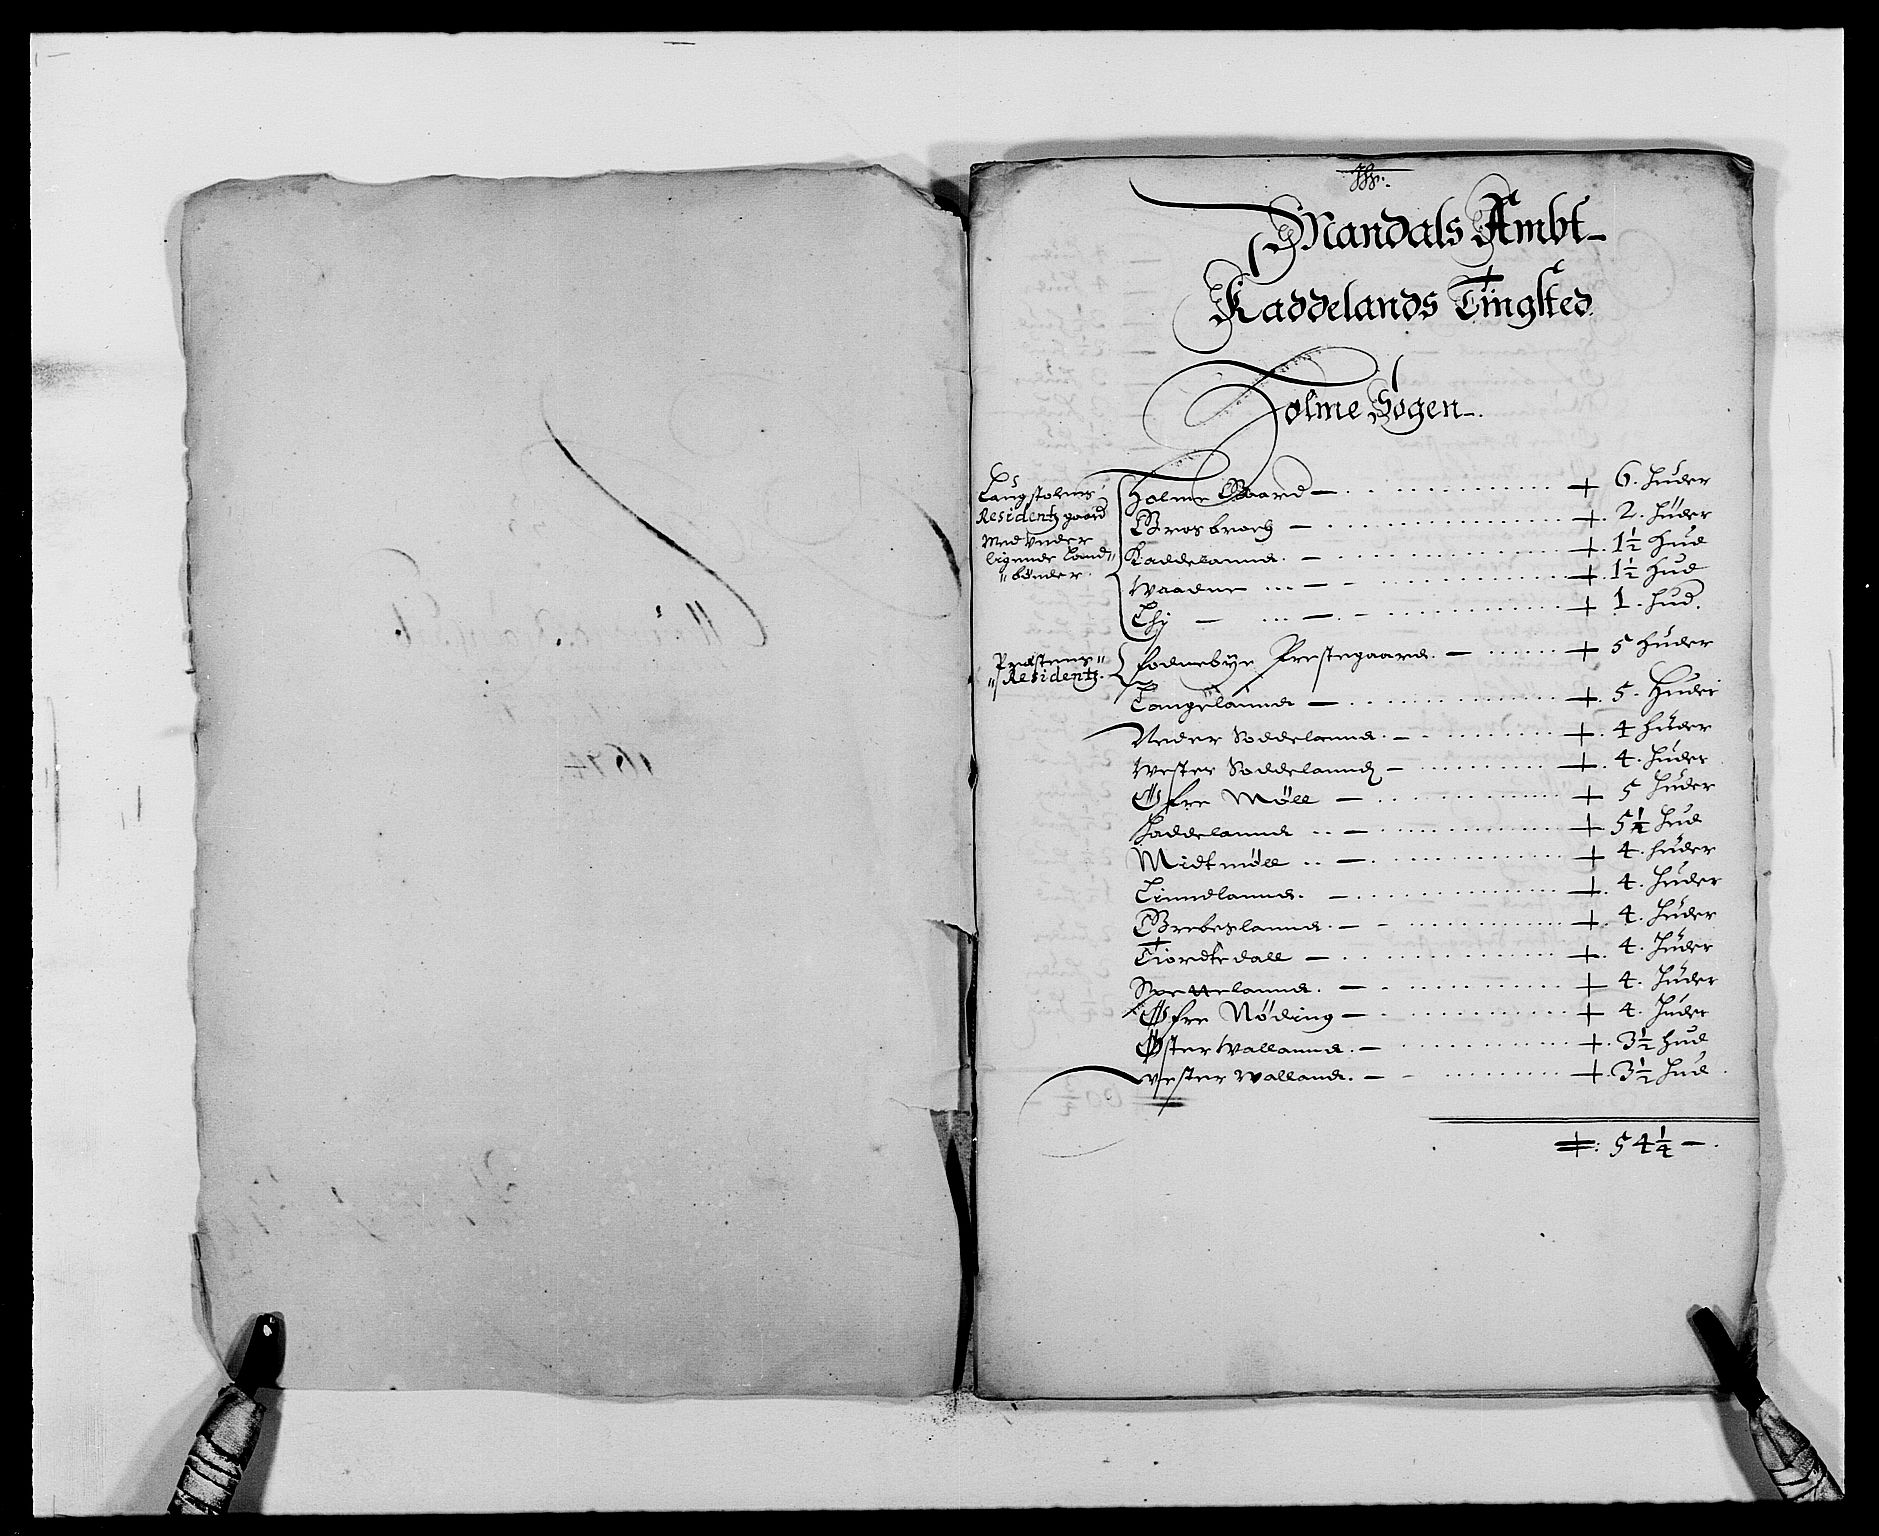 Mandals Ambt
Kaddelands Tingsted
Holme Sogen
Laugstolens
Residentz gaard
Med under
ligende Land
bønder
Holme Gaard + 6. huder
Grosbroch + 2. hüder
Kaddelannd + 1½ hud
Waadne + 1½ hud
Thj + 1. hud.
Prestens
Residentz
fodnebÿe Prestegaard + 5 huder
Langelannd + 5. Huder
Neder Soddelannd + 4 hüder
Wester Soddelannd + 4. huder
Øfre Møll + 5 huder
haddelannd + 5¼ hud
Midtmøll + 4. huder
Linndlannd + 4. huder
Grebeslannd + 4. hüder
Tiordtedall + 4. hüder
Spettelannd + 4. hüder
Øfre Nøding + 4. huder
Øster Wallannd + 3½ hud
Vester Walland + 3½ hud
54¼
1674